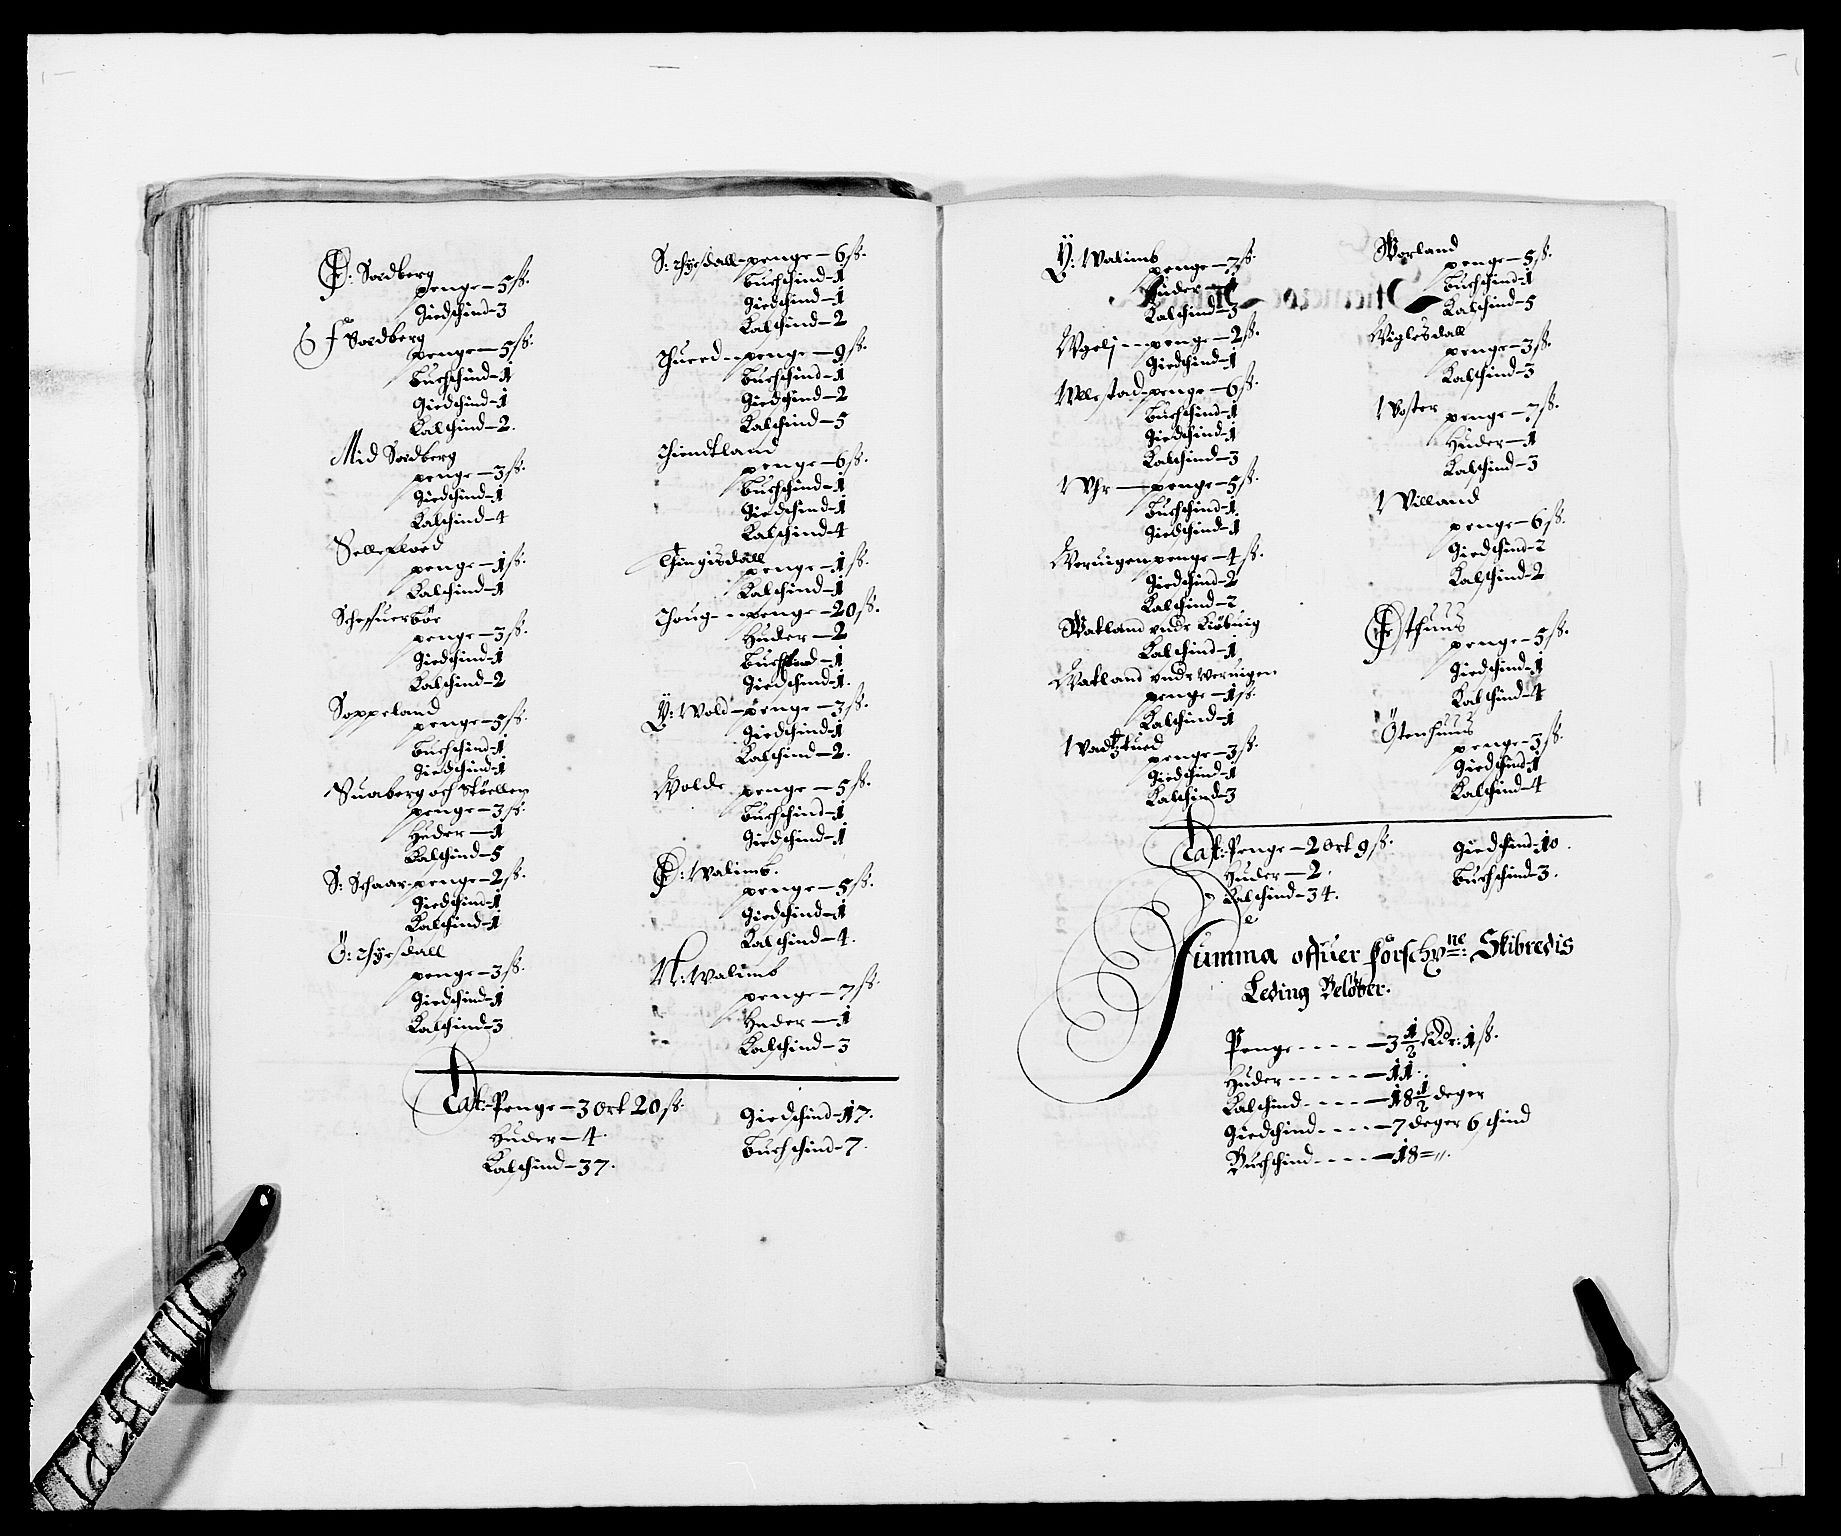 Ø: Soedberg
penge – 5 ß.
Giedschind – 3
Soedberg
penge – 5 ß.
Buchschind – 1
Giedschind – 1
Kalschind – 2.
Mid Soedberg
penge – 3 ß.
Giedschind – 1
Kalschind – 4
Sellefloed
penge – 1 ß.
Kalschind – 1
penge – 3 ß.
Giedschind – 1
Kalschind – 2
Soppeland
penge – 5 ß.
Buchschind – 1
Giedschind – 1
Suaberg och Støellen
penge – 3 ß.
Huder – 1
Kalschind – 5
S: Schaar – penge – 2 ß.
Giedschind – 1
Kalschind – 1
penge – 3 ß.
Giedschind – 1
Kalschind – 3
penge – 6 ß.
Buchschind – 1
Giedschind – 1
Kalschind – 2
penge – 9 ß.
Buchschind – 1
Giedschind – 2
Kalschind – 5
penge – 6 ß.
Buchschind – 1
Giedschind – 1
Kalschind – 4
Thingisdall
penge – 1 ß.
Kalschind – 1
penge – 20 ß.
Huder – 2
Buchschind – 1
Giedschind – 1.
Y: Wold – penge – 3 ß.
Giedschind – 1
Kalschind – 2.
Wolde penge – 5 ß.
Buchschind – 1
Giedschind – 1
Ø: Walimb.
penge – 5 ß.
Giedschind – 1
Kalschind – 4.
N: Walimb
penge – 7 ß.
Huder – 1
Kalschind – 3
Lat: Penge – 3 Ort 20 ß. Giedschind – 17.
Huder – 4. Buchschind – 7.
Kalschind – 37.
Y: Walimb
penge – 7 ß.
Huder – 1
Kalschind – 3
penge – 2 ß.
Giedschind – 1
Wllestad – penge – 6 ß.
Buchschind – 1
Giedschind – 1
Kalschind – 3
penge – 5 ß.
Buchschind – 1
Giedschind – 1
Weruigen penge – 4 ß.
Giedschind – 2
Kalschind – 2
Watland vndr Kiøbuig
Kalschind – 1
Watland vndr Weruigen
penge – 1 ß.
Kalschind – 1
penge – 3 ß.
Giedschind – 1
Kalschind – 3
Worland
penge – 5 ß.
Buchschind – 1
Kalschind – 5
Wiglesdall
penge – 3 ß.
Kalschind – 3
Woster penge – 7 ß.
Huder – 1
Kalschind – 3
Willand
penge – 6 ß.
Giedschind – 2
Kalschind – 2
penge – 5 ß.
Giedschind – 1
Kalschind – 4
Østenhuus
penge – 3 ß.
Giedschind – 1
Kalschind – 4
Lat: Penge – 2 Ort 9 ß. Giedschind – 10.
Huder – 2. Buchschind – 3.
Kalschind – 34.
Summa offuer forschr:ne: Skibredis
Leding Beløber.
Penge – 3 1/2 Rdr: 1 ß.
Huder – 11.
Kalschind – 18 1/2 deger
Giedschind – 7 deger 6 schind
Buchschind – 18 – „.